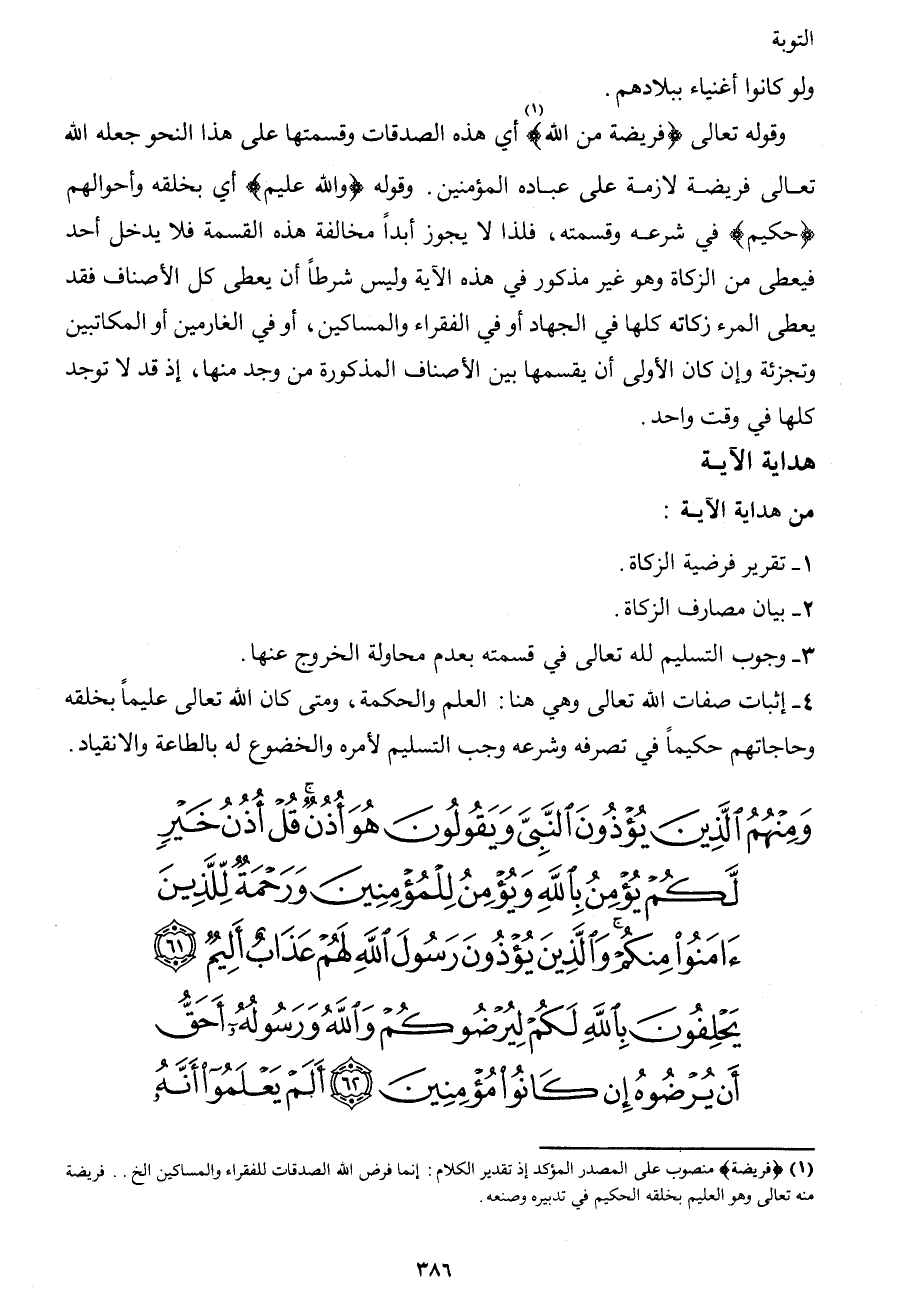 التوبة
ولو كانوا أغنياء ببلادهم .
وقوله تعالى ﴿فريضة من الله﴾(١) أي هذه الصدقات وقسمتها على هذا النحو جعله الله
تعـالى فريضـة لازمـة على عبـاده المؤمنين . وقوله ﴿والله عليم﴾ أي بخلقه وأحوالهم
﴿حكيم﴾ في شرعـه وقسمته ، فلذا لا يجوز أبداً مخالفة هذه القسمة فلا يدخل أحد
فيعطى من الزكاة وهو غير مذكور في هذه الآية وليس شرطاً أن يعطى كل الأصناف فقد
يعطى المرء زكاته كلها في الجهاد أو في الفقراء والمساكين ، أو في الغارمين أو المكاتبين
وتجزئة وإن كان الأولى أن يقسمها بين الأصناف المذكورة من وجد منها ، إذ قد لا توجد
كلها في وقت واحد .
هداية الآيـة
من هداية الآيـة :
١ـ تقرير فرضية الزكاة .
٢ـ بيان مصارف الزكاة .
٣ـ وجوب التسليم لله تعالى في قسمته بعدم محاولة الخروج عنها .
٤ـ إثبات صفات الله تعالى وهي هنا : العلم والحكمة ، ومتى كان الله تعالى عليماً بخلقه
وحاجاتهم حكيماً في تصرفه وشرعه وجب التسليم لأمره والخضوع له بالطاعة والانقياد .
وَمِنْهُمُ ٱلَّذِينَ يُؤْذُونَ ٱلنَّبِىَّ وَيَقُولُونَ هُوَ أُذُنٌۚ قُلْ أُذُنُ خَيْرٍ
لَّكُمْ يُؤْمِنُ بِٱللَّهِ وَيُؤْمِنُ لِلْمُؤْمِنِينَ وَرَحْمَةٌ لِّلَّذِينَ
ءَامَنُوا۟ مِنكُمْۚ وَٱلَّذِينَ يُؤْذُونَ رَسُولَ ٱللَّهِ لَهُمْ عَذَابٌ أَلِيمٌ ٦١
يَحْلِفُونَ بِٱللَّهِ لَكُمْ لِيُرْضُوكُمْ وَٱللَّهُ وَرَسُولُهُۥٓ أَحَقُّ
أَن يُرْضُوهُ إِن كَانُوا۟ مُؤْمِنِينَ ٦٢ أَلَمْ يَعْلَمُوٓا۟ أَنَّهُۥ
(١) ﴿فريضة﴾ منصوب على المصدر المؤكد إذ تقدير الكلام : إنما فرض الله الصدقات للفقراء والمساكين الخ . . فريضة
منه تعالى وهو العليم بخلقه الحكيم في تدبيره وصنعه .
٣٨٦